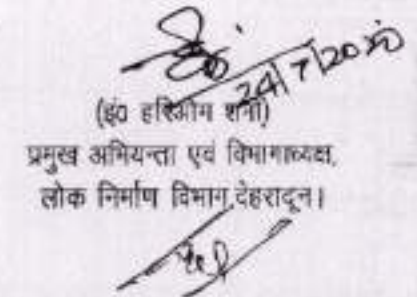 24/7/2020
(इं0 हरिओम शर्मा)
प्रमुख अभियन्ता एवं विभागाध्यक्ष,
लोक निर्माण विभाग, देहरादून।